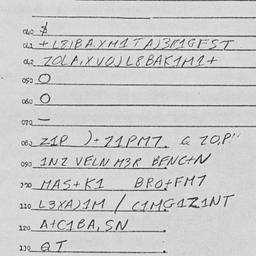 040 $
041 + L8IBA.XM1TA)3R1GFST
042 ZOLA,XVO)L8BAK1M1+
050 O
060 O
070 –
080 Z1P )+21PM7. & ZO,P
090 1NZ VELN M3R BENC+N
100 MAS+K1 BRO+FM7
110 L3XA)1M / C1MG1Z1NT
120 A+C1BA,SN
130 QT